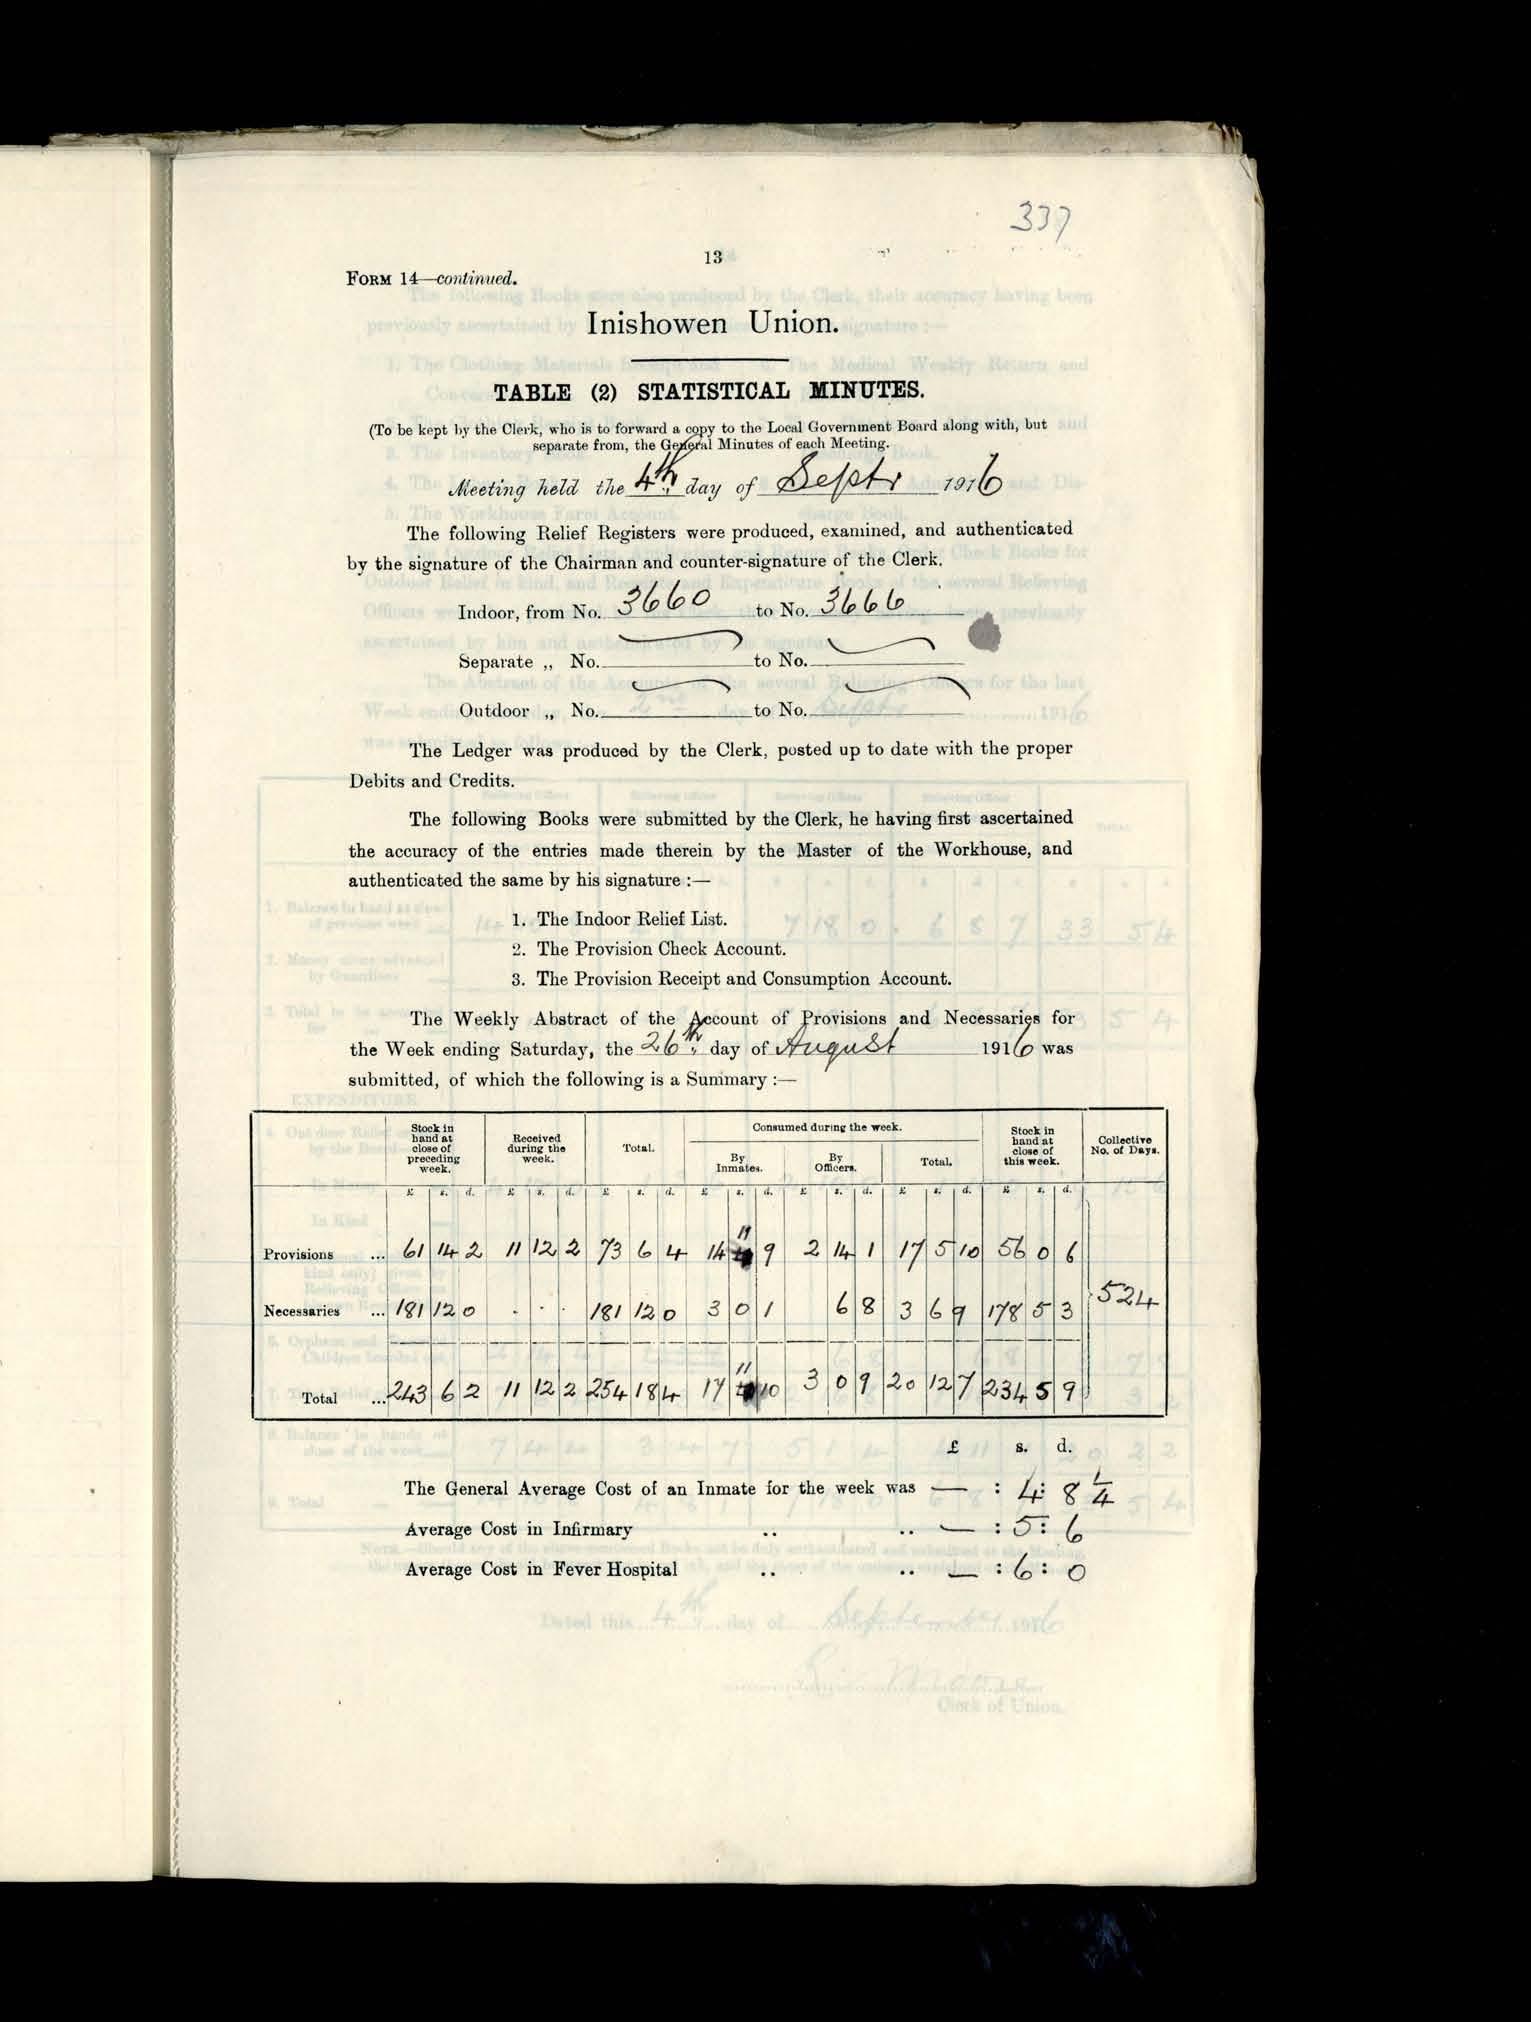 337
13
FORM 14—continued.
Inishowen Union.
TABLE (2) STATISTICAL MINUTES.
(To be kept by the Clerk, who is to forward a copy to the Local Government Board along with, but
separate from, the General Minutes of each Meeting.
Meeting held the 4th day of Septr 1916
The following Relief Registers were produced, examined, and authenticated
by the signature of the Chairman and counter-signature of the Clerk.
Indoor, from No. 3660 to No. 3666
Separate „ No. to No.
Outdoor „ No. to No.
The Ledger was produced by the Clerk, posted up to date with the proper
Debits and Credits.
The following Books were submitted by the Clerk, he having first ascertained
the accuracy of the entries made therein by the Master of the Workhouse, and
authenticated the same by his signature :—
1. The Indoor Relief List.
2. The Provision Check Account.
3. The Provision Receipt and Consumption Account.
The Weekly Abstract of the Account of Provisions and Necessaries for
the Week ending Saturday, the 26th day of August 1916 was
submitted, of which the following is a Summary :—
Stock in hand at close of preceding week. Received during the week. Total. Consumed during the week. Stock in hand at close of this week. Collective No. of Days.
By Inmates. By Officers. Total.
£ s. d. £ s. d. £ s. d. £ s. d. £ s. d. £ s. d. £ s. d.
Provisions ... 61 14 2 11 12 2 73 6 4 14 11 9 2 14 1 17 5 10 56 0 6
Necessaries ... 181 12 0 . . . 181 12 0 3 0 1 6 8 3 6 9 178 5 3 524
Total ... 243 6 2 11 12 2 254 18 4 17 11 10 3 0 9 20 12 7 234 5 9
£ s. d.
The General Average Cost of an Inmate for the week was — : 4 : 8 1/4
Average Cost in Infirmary .. .. — : 5 : 6
Average Cost in Fever Hospital .. .. — : 6 : 0